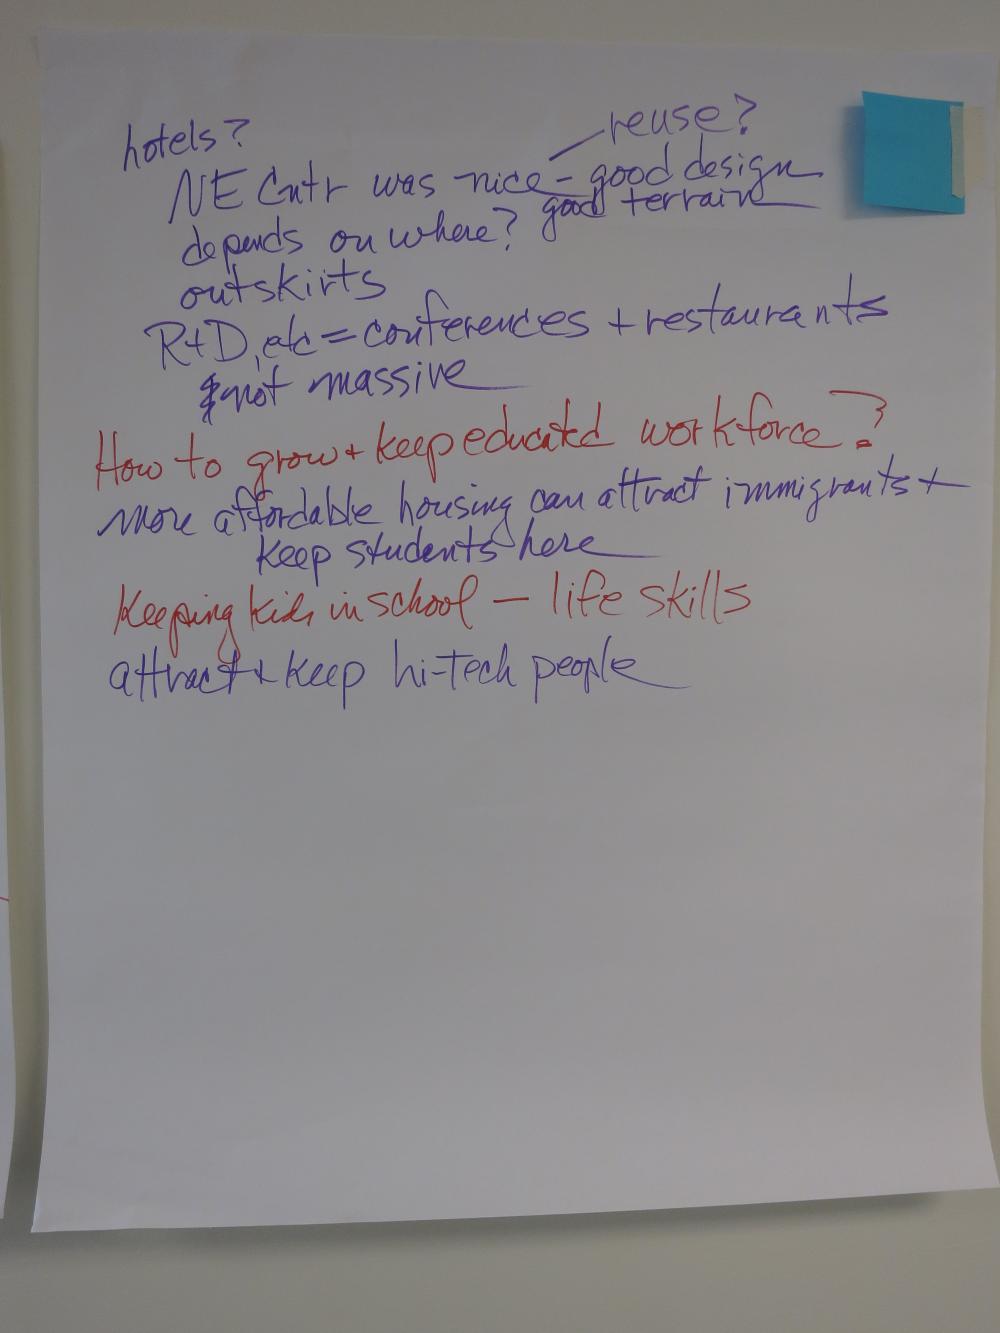 hotels?
reuse?
NE Cntr was nice - good design
good terrain
depends on where?
outskirts
R+D, etc = conferences + restaurants
not massive
How to grow + keep educated workforce?
more affordable housing can attract immigrants +
keep students here
Keeping kids in school - life skills
attract + keep hi-tech people